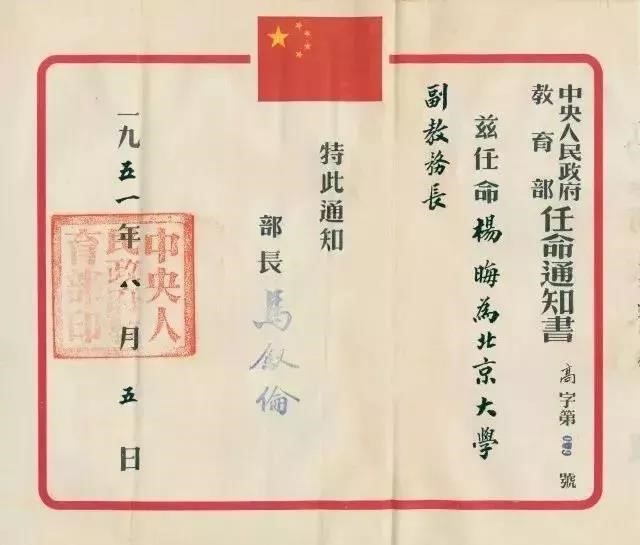 中央人民政府
教育部
任命通知書
高字第009號
兹任命楊晦為北京大學
副教務長
特此通知
部長馬叙倫
一九五一年八月五日
中央人
民政府教
育部印